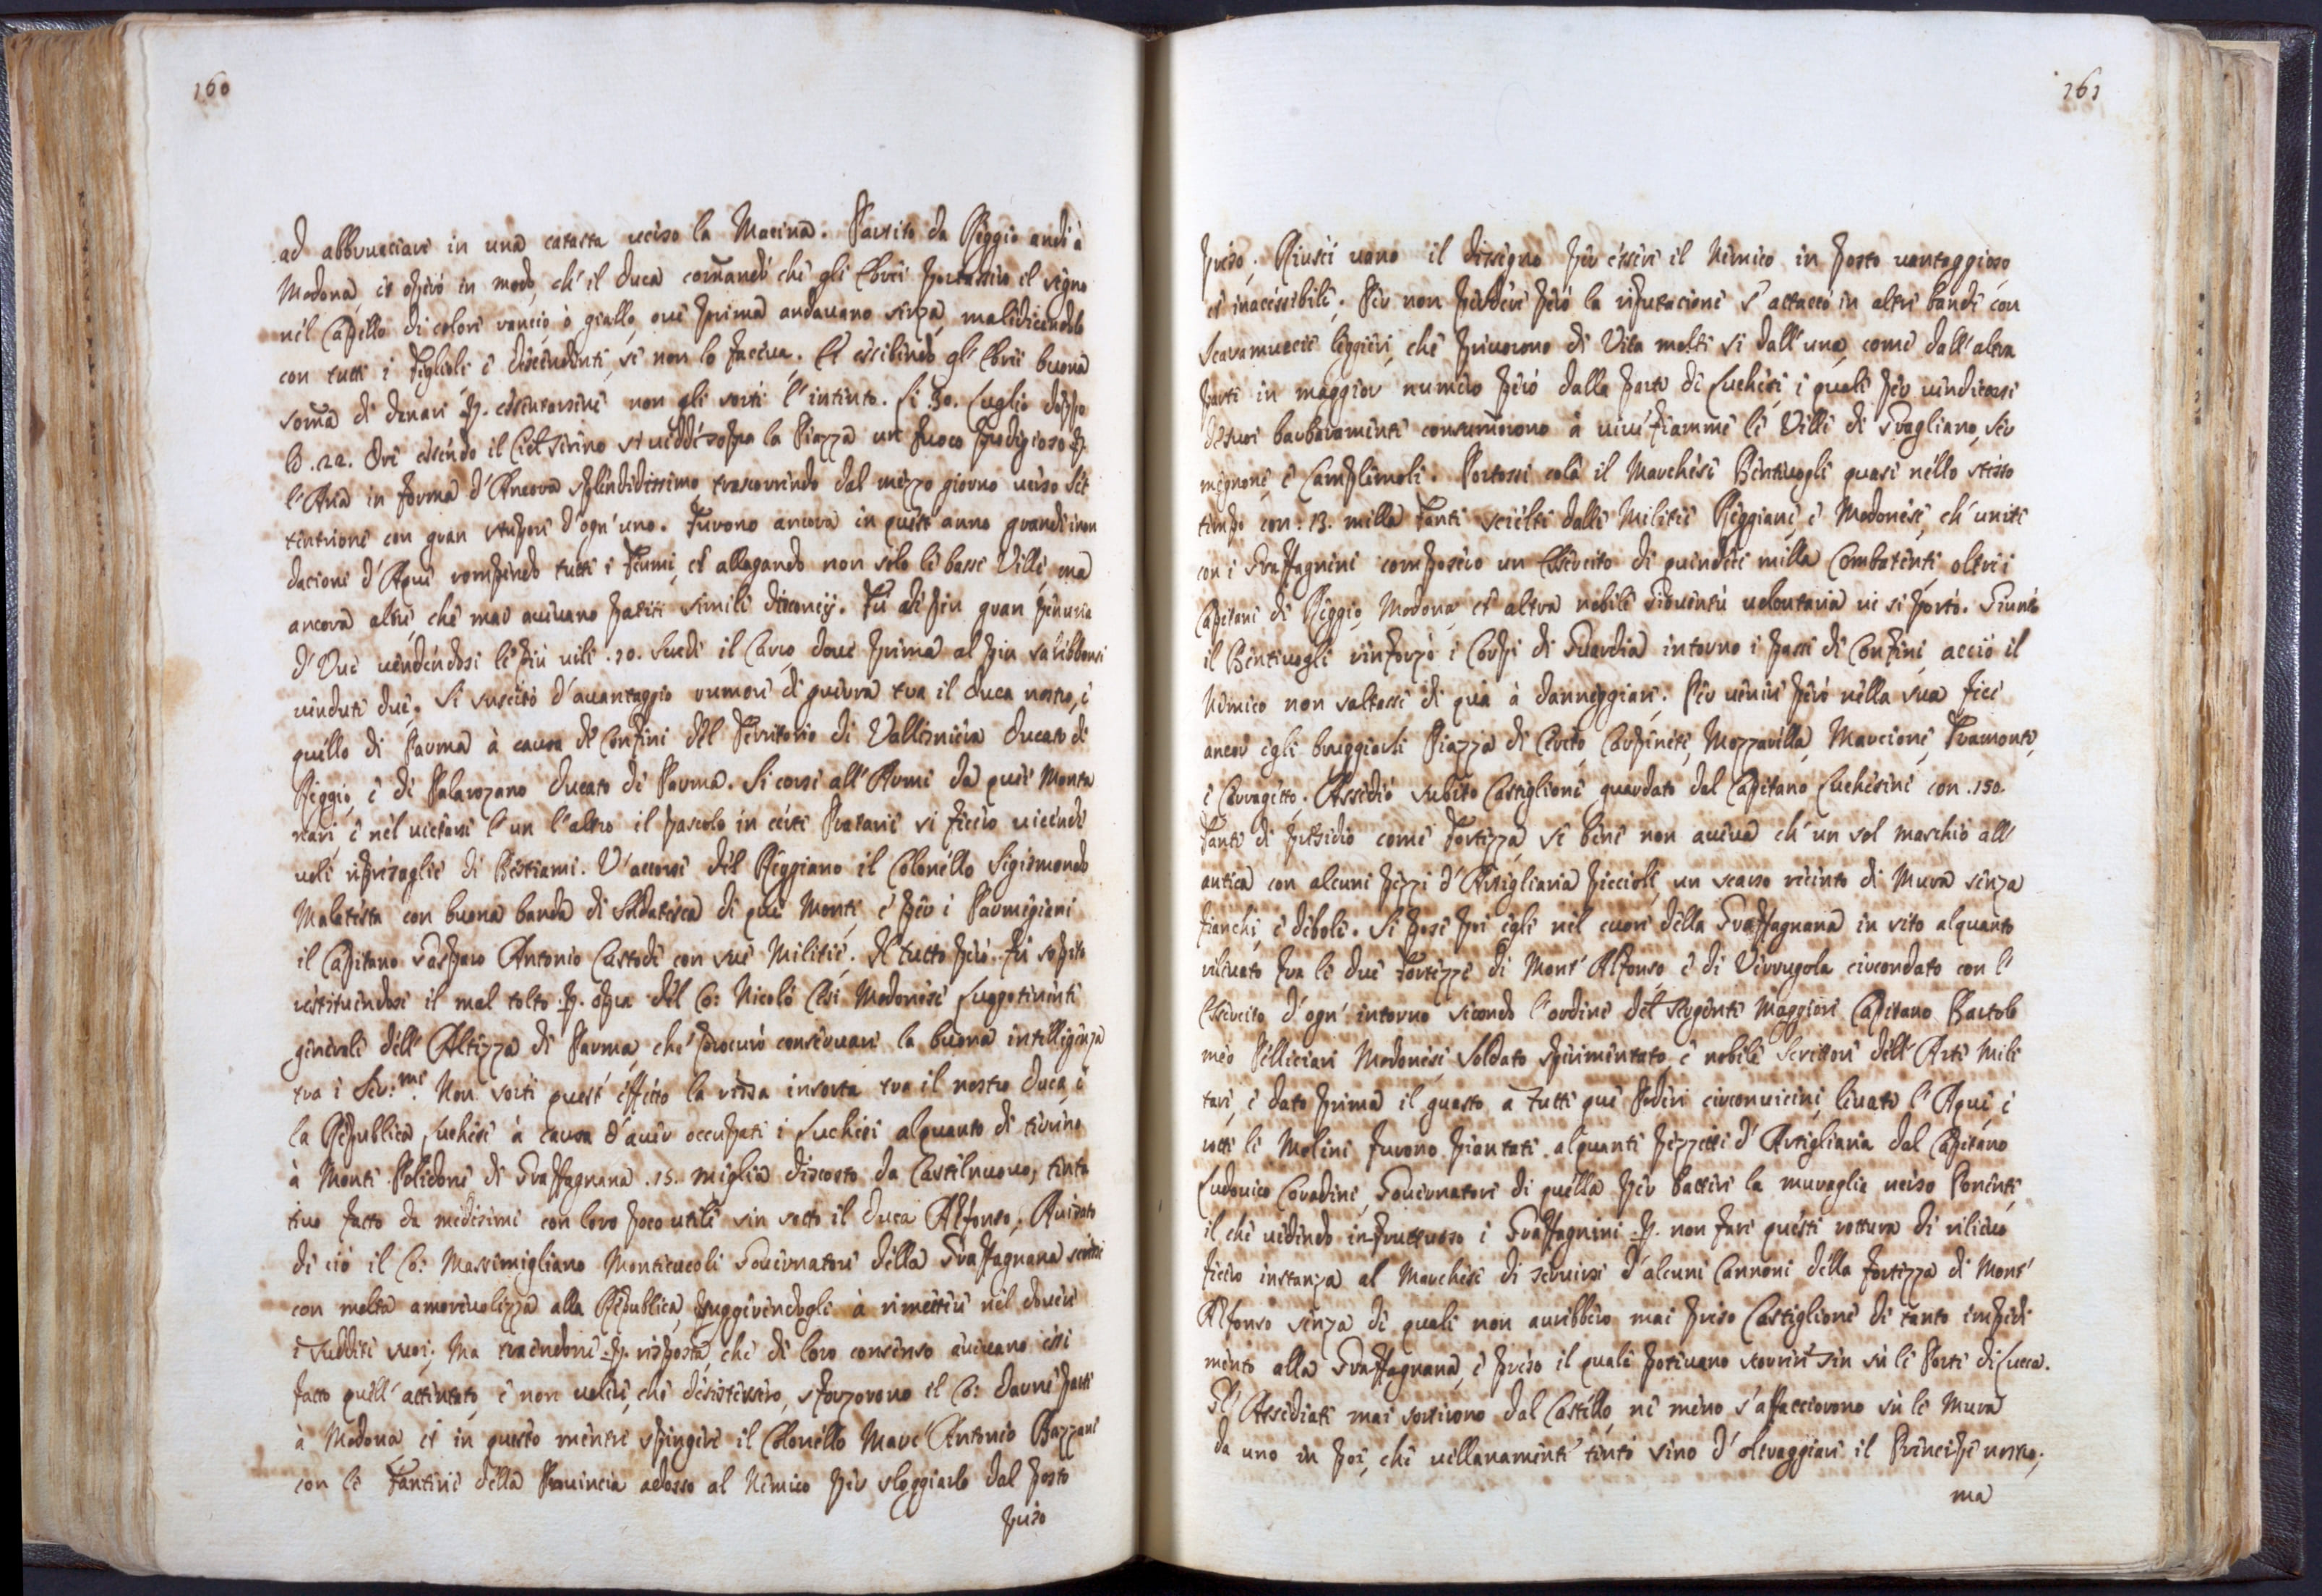 160
ad abbruacciare in una catasta verso la Macina. Partito da Reggio andò à
Modona, et operò in modo, ch'il Duca comandò che gli Ebrei portassero il segno
nel Capello di colore rancio, ò giallo, ove prima andavano senza, maledicendolo
con tutti i Figlioli e discendenti, se non lo faceva. Et essibendo gl'Ebrei buona
soma di denari p. essentarsene non gli sortì l'intento. Li 30. Luglio doppo
le .22. Ore essendo il Ciel sereno si vedde sopra la Piazza un fuoco prodigioso p.
l'Aria in forma d'Ancora splendidissimo, trascorrendo dal mezzo giorno verso Set
tentrione con gran stupore d'ogn'uno. Furono ancora in quest'anno grandi inon
dacioni d'Aque rompendo tutti i Fiumi, et allagando non solo le basse Ville, ma
ancora altre, che mai avevano patiti simili disconcij. Fu di più gran penuria
d'Uve vendendosi le più vili .10. scudi il Carro, dove prima al più sarebbonsi
vendute due. Si suscitò d'avantaggio rumore di guerra tra il Duca nostro, e
quello di Parma à causa de Confini del Territorio di Vallisniera Ducato di
Reggio, e di Palarozano Ducato di Parma. Si corse all'Armi da quei Monta
nari, e nel vietarsi l'un l'altro il pascolo in certe Pratarie si fecero vicende
voli ripresaglie di Bestiami. V'accorse del Reggiano il Colonello Sigismondo
Malatesta con buona banda di Soldatesca di que' Monti, e per i Parmegiani
il Capitano Gasparo Antonio Castodi con sue Militie. Il tutto però fù sopito
restituendosi il mal tolto p. opra del Co: Nicolò Cesi Modonese Luogotenente
generale dell'Altezza di Parma, che procurò conservare la buona intelligenza
tra i Ser:mi. Non sortì quest'effetto la rissa insorta tra il nostro Duca, e
la Republica Luchese à causa d'aver occupati i Luchesi alquanto di terreno
à Monte Pelidone di Graffagnana .15. miglia discosto da Castelnuovo, tenta
tivo fatto da medesimi con loro poco utile sin sotto il Duca Alfonso. Avisato
di ciò il Co: Massimigliano Montecucoli Governatore della Graffagnana scrisse
con molta amorevolezza alla Republica, suggerendogli à rimettere nel dovere
i Sudditi suoi. Ma traendone p. risposta, che di loro consenso avevano essi
fatto quell'attentato, e non volere, che desistessero, sforzorono il Co: darne parte
à Modona, et in questo mentre spingere il Colonello Marc'Antonio Bazzani
con le Fantarie della Provincia adosso al Nemico per sloggiarlo dal posto
preso
161
preso. Riuscì vano il dissegno per essere il Nemico in posto vantaggioso,
et inacessibile. Per non perdere però la riputacione s'attaccò in altre bande con
Scaramuccie leggieri, che privorono di Vita molti sì dall'una, come dall'altra
parte in maggior numero però dalla parte di Luchesi, i quali per vendicarsi
de suoi barbaramente consumorono à vive fiamme le Ville di Gragliano, Ser
mignone, e Camplemoli. Portossi colà il Marchese Bentivogli quasi nello stesso
tempo con .13. milla Fanti scielti dalle Militie Reggiane, e Modonesi, ch'uniti
con i Graffagnini composero un Essercito di quindeci milla Combatenti, oltre i
Capitani di Reggio, Modona, et altra nobile Gioventù volontaria vi si portò. Giunto
il Bentivogli rinforzò i Corpi di Guardia intorno i passi di Confini, acciò il
Nemico non saltasse di quà à danneggiare. Per venire però nella sua fece
ancor egli bruggiarli Piazza di Cereto, Carpineti, Mozzanilla, Marcione, Tramonte,
e Carragetto. Assediò subito Castiglione guardato dal Capitano Luchesini con .150.
Fanti di presidio come Fortezza, se bene non aveva ch'un sol maschio all'
antica con alcuni pezzi d'Artigliaria piccioli, un scarso recinto di Mura senza
fianchi, e debole. Si pose poi egli nel cuore della Graffagnana in sito alquanto
rilevato fra le due Fortezze di Mont'Alfonso, e di Verrugola circondato con l'
Essercito d'ogn'intorno secondo l'ordine del Sergente Maggiore Capitano Bartolo
meo Pelliciari Modonese, Soldato sperimentato, e nobile Scrittore dell'Arte Mili
tare, e dato prima il guasto a tutti que' Poderi circonvicini, levate l'Aque, e
rotti li Molini furono piantati alquanti pezzetti d'Artigliaria dal Capitano
Ludovico Coradini, Governatore di quella per battere la muraglia verso Ponente,
il che vedendo infruttuoso i Graffagnini p. non fare questi rottura di rilievo
fecero instanza al Marchese di servirsi d'alcuni Cannoni della fortezza di Mont'
Alfonso senza de quali non avrebbero mai preso Castiglione di tanto impedi
mento alla Graffagnana, e preso il quale potevano scorrere sin sù le Porte di Lucca.
Gl'Assediati mai sortirono dal Castello, ne meno s'affacciorono sù le Mura
da uno in poi, che villanamente tentò sino d'oltraggiare il Principe nostro;
ma